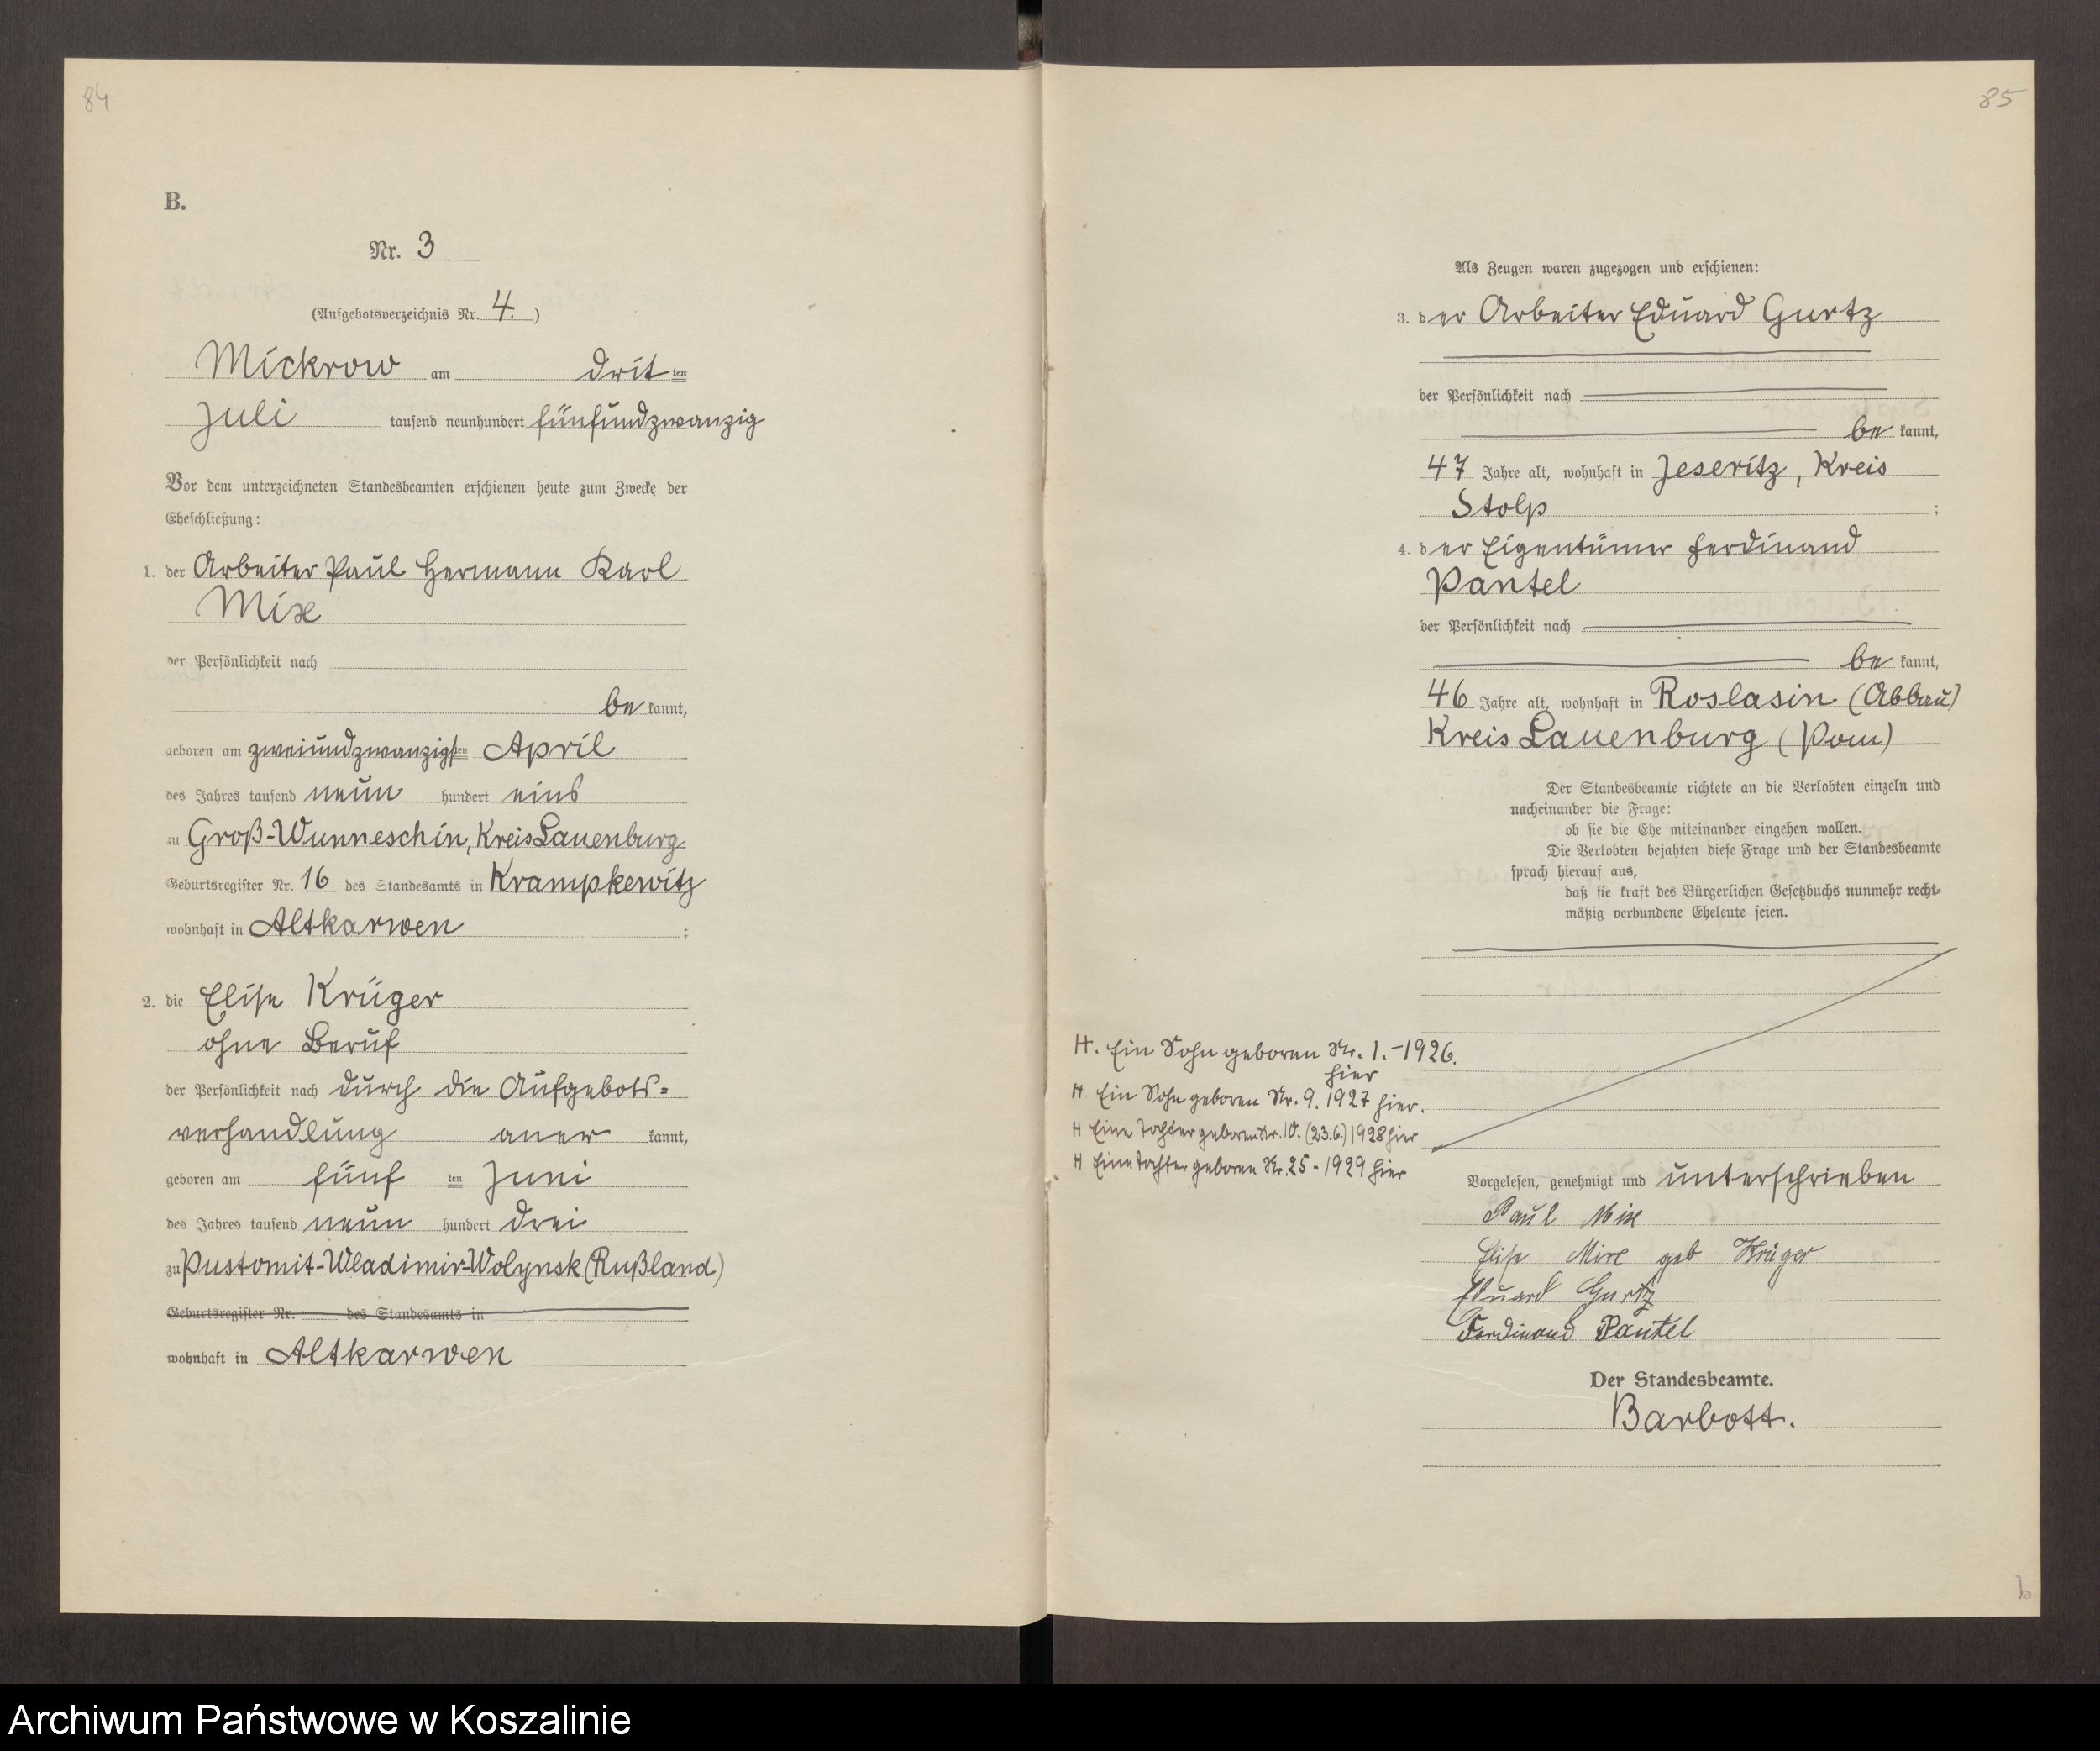 84
B.
Nr. 3
(Aufgebotsverzeichnis Nr. 4.)
Mickrow am drit ten
Juli tausend neunhundert fünfundzwanzig
Vor dem unterzeichneten Standesbeamten erschienen heute zum Zwecke der
Eheschließung:
1. der Arbeiter Paul Hermann Karl
Mixe
der Persönlichkeit nach
be kannt,
geboren am zweiundzwanzigsten April
des Jahres tausend neun hundert eins
zu Groß-Wunneschin, Kreis Lauenburg
Geburtsregister Nr. 16 des Standesamts in Krampkewitz
wohnhaft in Altkarwen ;
2. die Elise Krüger
ohne Beruf
der Persönlichkeit nach durch die Aufgebots=
verhandlung aner kannt,
geboren am fünf ten Juni
des Jahres tausend neun hundert drei
zu Pustomit-Wladimir-Wolynsk (Rußland)
Geburtsregister Nr. des Standesamts in
wohnhaft in Altkarwen
85
Als Zeugen waren zugezogen und erschienen:
3. der Arbeiter Eduard Gurtz
der Persönlichkeit nach
be kannt,
47 Jahre alt, wohnhaft in Jeseritz, Kreis
Stolp ;
4. der Eigentümer Ferdinand
Pantel
der Persönlichkeit nach
be kannt,
46 Jahre alt, wohnhaft in Roslasin (Abbau)
Kreis Lauenburg (Pom)
Der Standesbeamte richtete an die Verlobten einzeln und
nacheinander die Frage:
ob sie die Ehe miteinander eingehen wollen.
Die Verlobten bejahten diese Frage und der Standesbeamte
sprach hierauf aus,
daß sie kraft des Bürgerlichen Gesetzbuchs nunmehr recht-
mäßig verbundene Eheleute seien.
H. Ein Sohn geboren Nr. 1.-1926.
hier
H Ein Sohn geboren Nr. 9. 1927 hier.
H Eine Tochter geboren Nr. 10. (23.6.) 1928 hier
H Eine Tochter geboren Nr. 25 - 1929 hier
Vorgelesen, genehmigt und unterschrieben
Paul Mixe
Elise Mixe geb Krüger
Eduard Gurtz
Ferdinand Pantel
Der Standesbeamte.
Barbott.
Archiwum Państwowe w Koszalinie